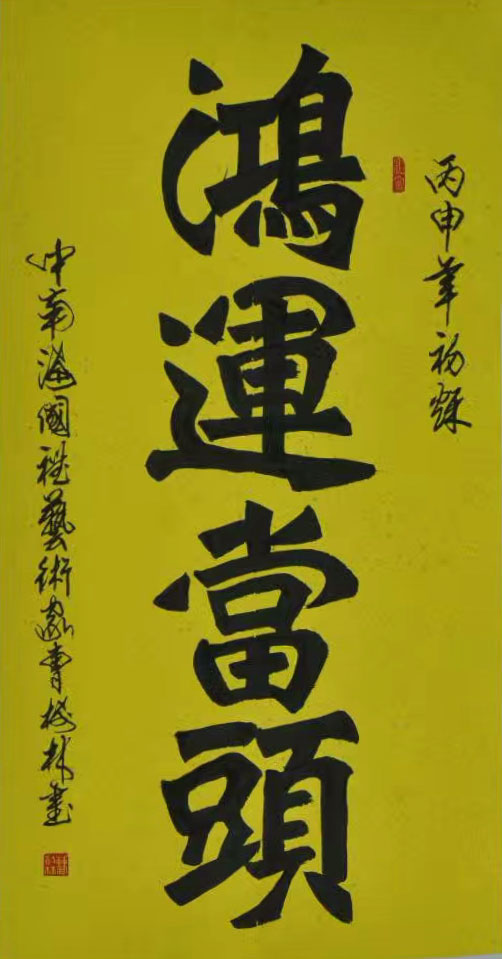 丙申年初秋
鴻運當頭
中南海國禮藝術家曹林書